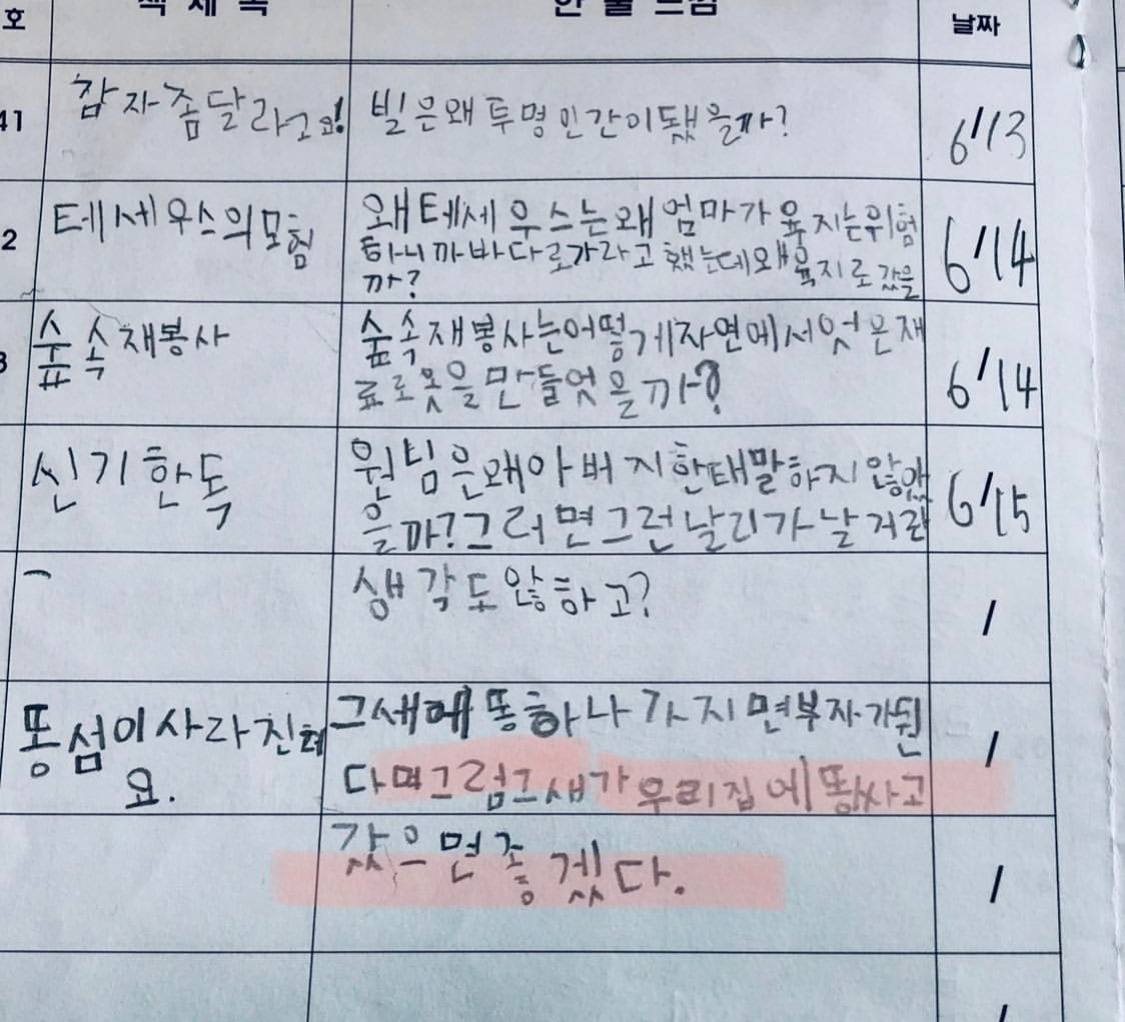 호 책 제 목 한 줄 느 낌 날짜
41 감자좀달라고요! 빌은왜투명인간이됐을까? 6/13
2 테세우스의모험 왜테세우스는왜엄마가육지는위험
하니까바다로가라고했는데왜육지로갔을
까? 6/14
3 숲속재봉사 숲속재봉사는어떻게자연에서엇은재
료로옷을만들엇을까? 6/14
신기한독 원님은왜아버지한태말하지않았
을까?그러면그런날리가날거란 6/15
생각도않하고? /
똥섬이사라진데
요.
그새에똥하나가지면부자가된
다며그럼그새가우리집에똥싸고 /
갔으면좋겠다. /
/